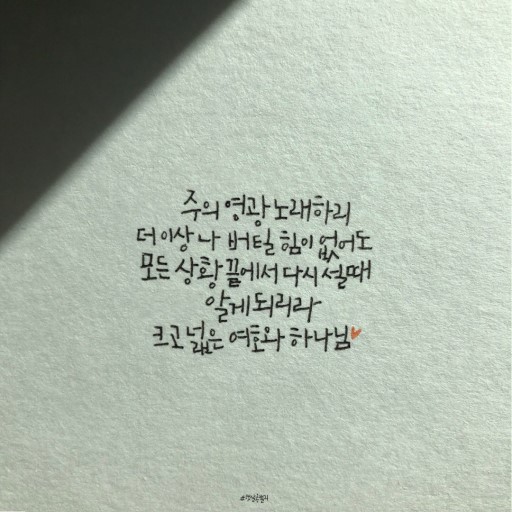 주의 영광 노래하리
더 이상 나 버틸 힘이 없어도
모든 상황 끝에서 다시 설 때
알게 되리라
크고 넓은 여호와 하나님